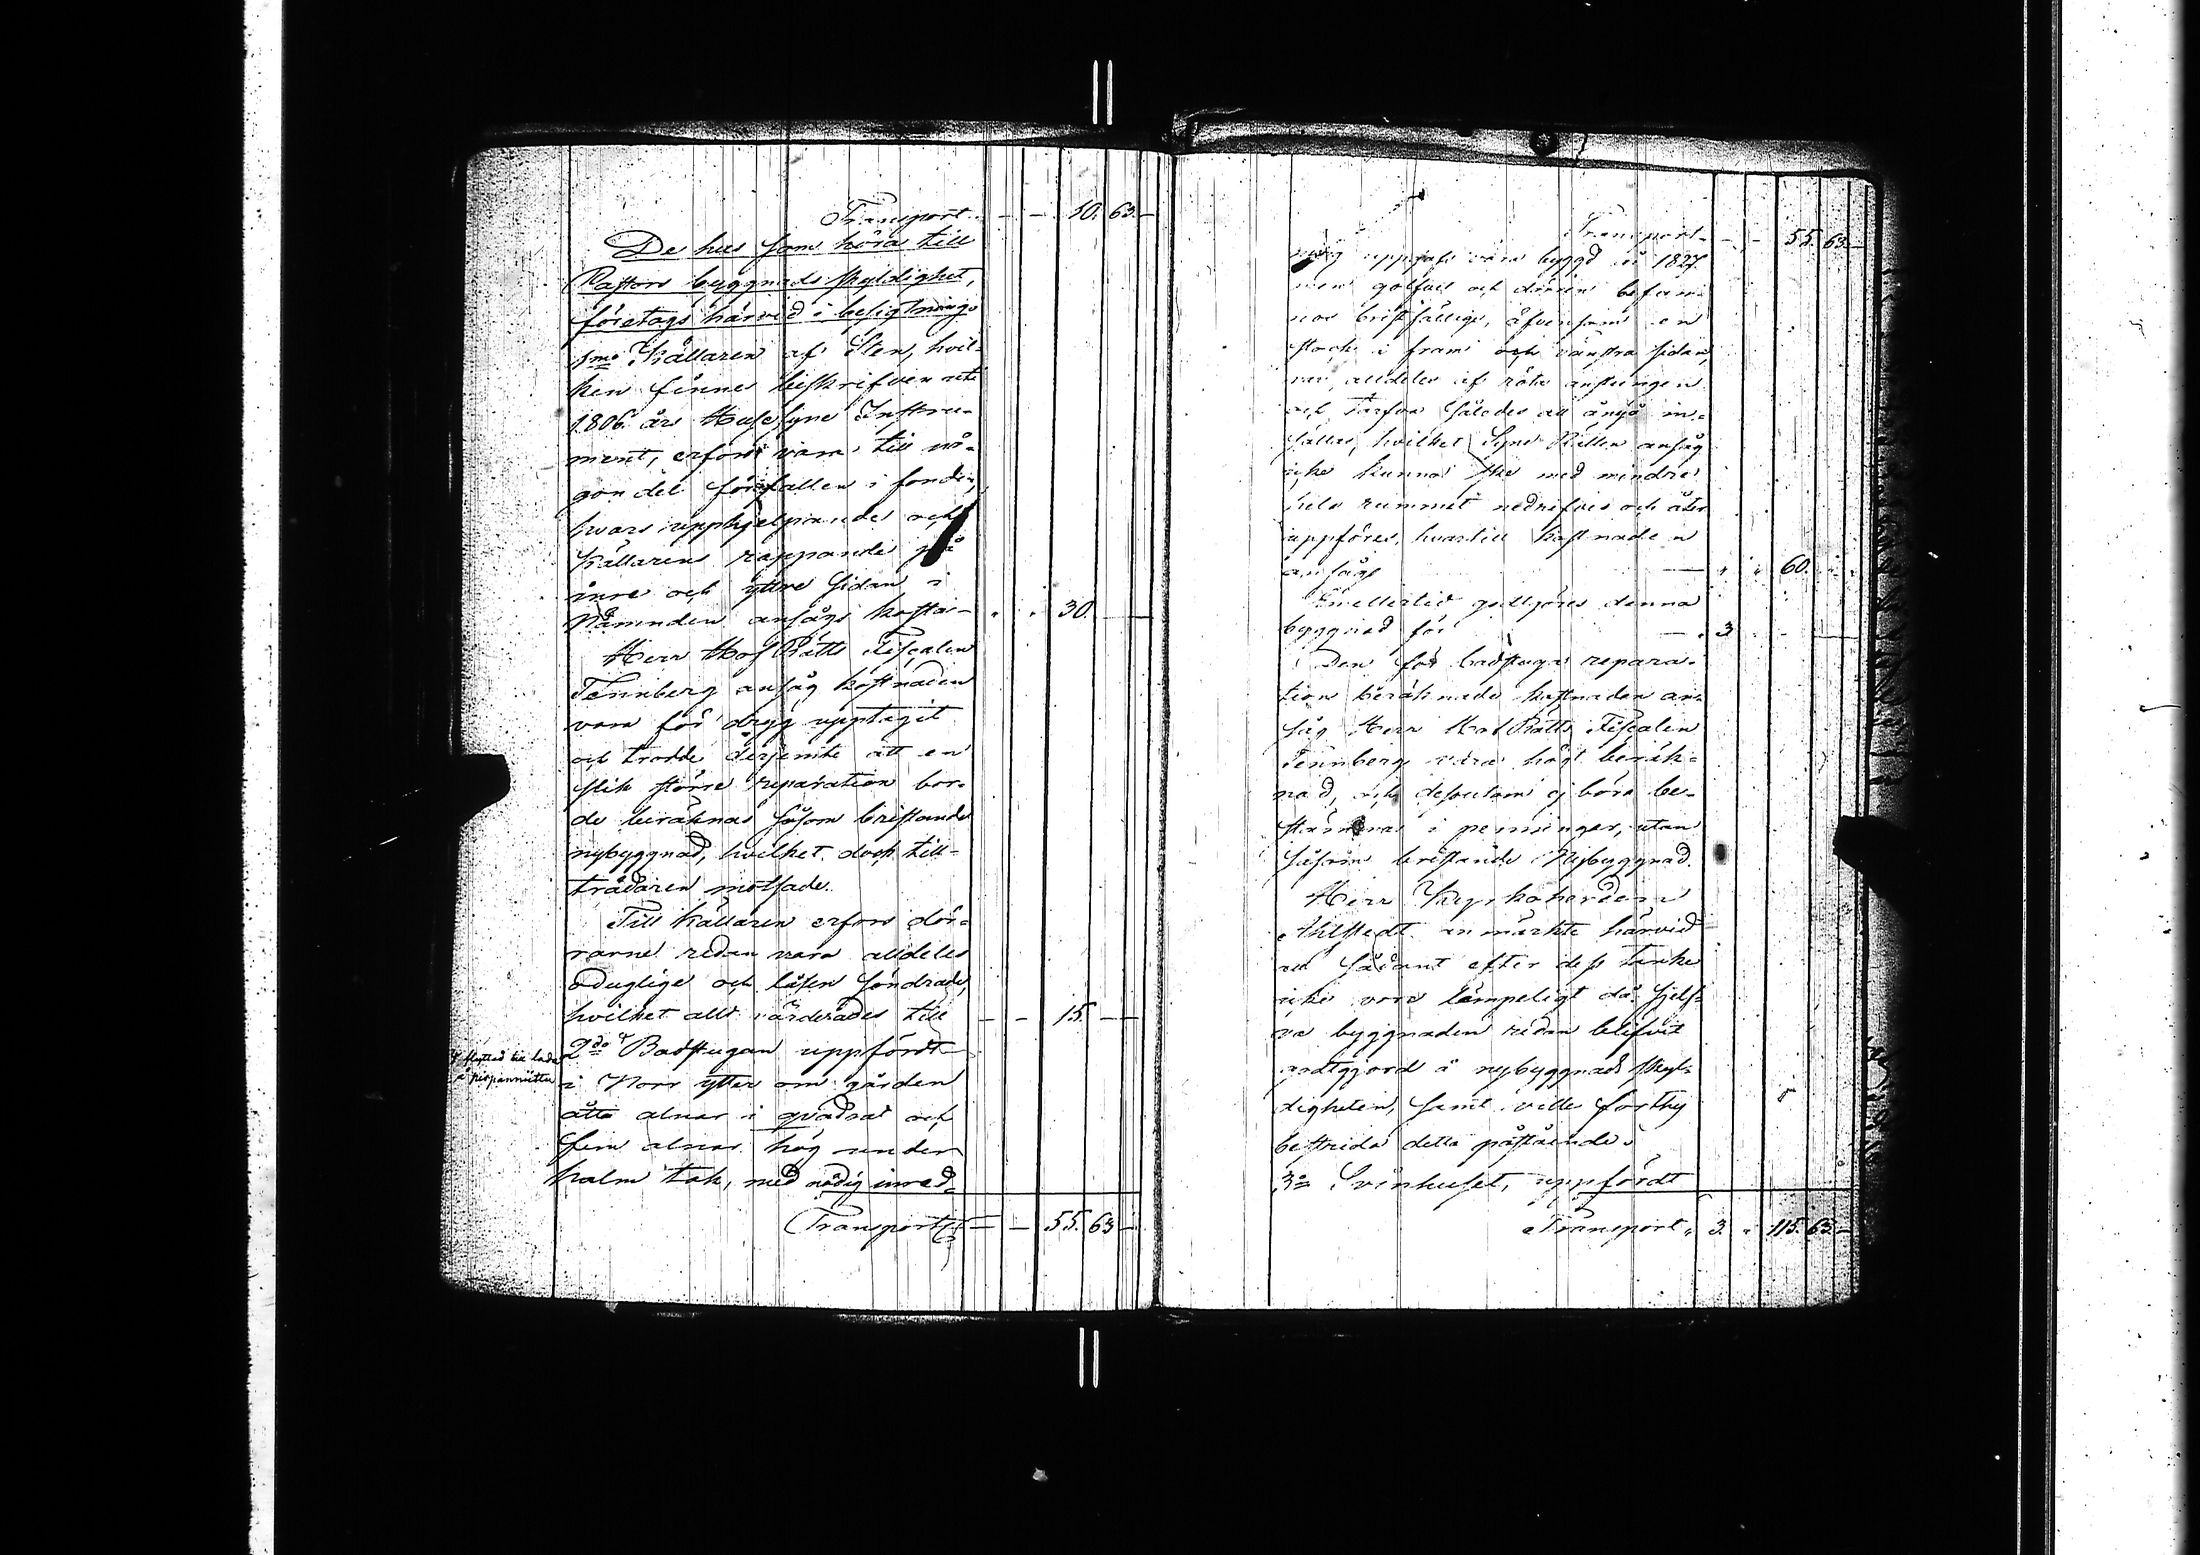 Transport - - 10. 63. -
De hus som höra till
Pastors byggnads skyldighet,
företags härvid i besigtning.
1mo Källaren af Sten, hvil-
ken finnes beskrifven uti
1806 års Husesyns Instru-
ment, erfors vara till nå-
gon del förfallen i fonden,
hvars upphjelpande och
källarens rappande på
inre och yttre sidan i
Nämnden ansågs kosta - 30. -
Herr Hof Rätts Fiscalen
Tennberg ansåg kostnaden
vara för drygt upptagit
och trodde derjemte att en
slik större reparation bor-
de beräknas såsom bristande
nybyggnad, hvilket dock till-
trädaren motsade.
Till källaren erfors dör-
rarne redan vara alldeles
oduglige och låsen söndrade,
hvilket allt värderades till - - 15. - -
2do Badstugan uppfördt
i Norr ytter om gården
åtta alnar i qvadrat och
fem alnar hög under
halm tak, med nödig inred-
Transport - - 55. 63 -
flyttad till lada
Transport - - 55. 63 -
ning uppgafs vara byggd år 1827.
men golfvet och dörren befun-
nos bristfällige, äfvensom en
stock i fram och vänstra sidan,
var alldeles af röta anstungen
och tarfva således att ånyo in-
fällas, hvilket Syne Rätten ansåg
icke kunna ske med mindre
hela rummet nedrifves och åter
uppföres, hvartill kostnaden
ansågs - 60.
Emellertid godtgöres denna
byggnad för - 3 -
Den för badstugu repara-
tion beräknade kostnaden an-
såg Herr Hof Rätts Fiscalen
Tennberg vara högt beräk-
nad, och dessutom ej böra be-
stämmas i penningar, utan
såsom bristande Nybyggnad.
Herr Kyrkoherden
Ahlstedt anmärkte härvid
att sådant efter dess tanke
icke vore lämpeligt då sjelf-
va byggnaden redan blifvit
godtgjord i nybyggnads skyl-
digheten, samt ville forthy
bestrida detta påstående.
3o Svinhuset, uppfördt
Transport 3. 115. 63 -